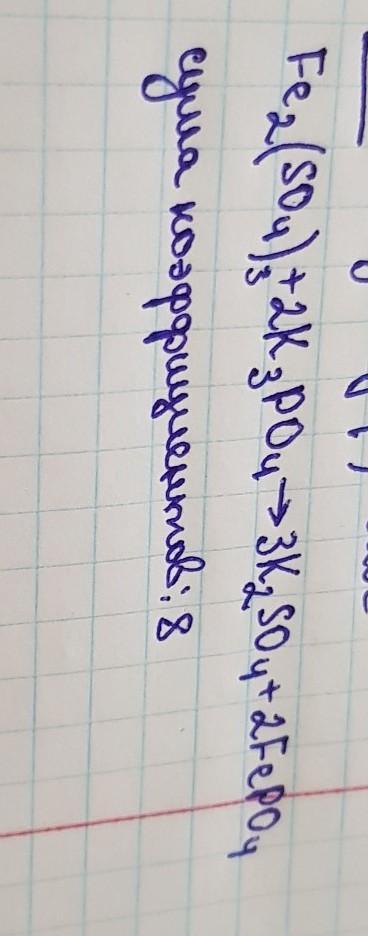 Fe₂(SO₄)₃+2K₃PO₄→3K₂SO₄+2FePO₄
сума коэффициентов: 8